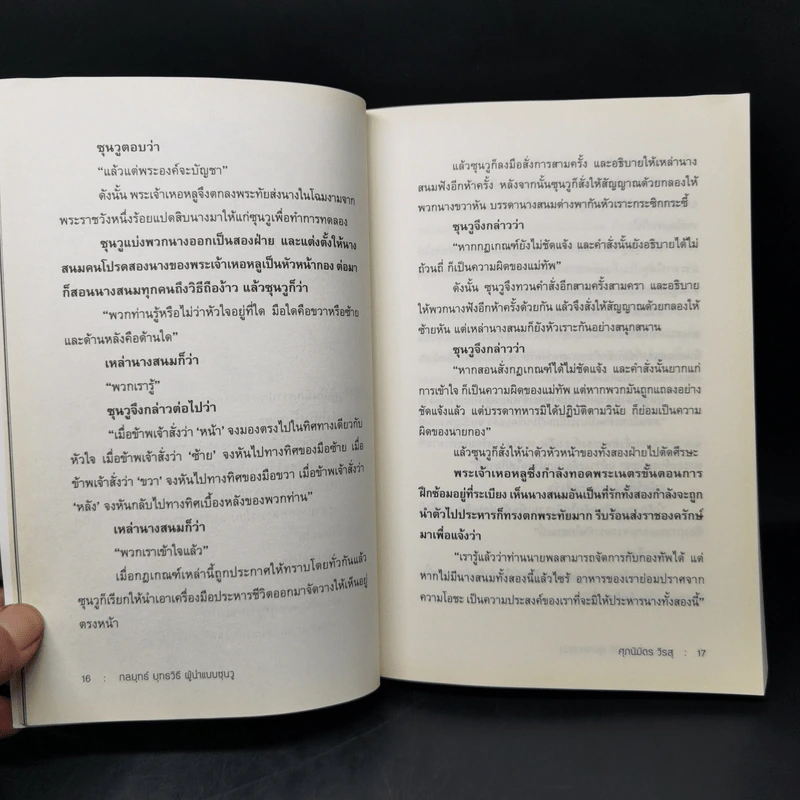 ซุนวูตอบว่า
"แล้วแต่พระองค์จะบัญชา"
ดังนั้น พระเจ้าเหอหลูจึงตกลงพระทัยส่งนางในโฉมงามจาก
พระราชวังหนึ่งร้อยแปดสิบนางมาให้แก่ซุนวูเพื่อทำการทดลอง
ซุนวูแบ่งพวกนางออกเป็นสองฝ่าย และแต่งตั้งให้นาง
สนมคนโปรดสองนางของพระเจ้าเหอหลูเป็นหัวหน้ากอง ต่อมา
ก็สอนนางสนมทุกคนถึงวิธีถือง้าว แล้วซุนวูก็ว่า
"พวกท่านรู้หรือไม่ว่าหัวใจอยู่ที่ใด มือใดคือขวาหรือซ้าย
และด้านหลังคือด้านใด"
เหล่านางสนมก็ว่า
"พวกเรารู้"
ซุนวูจึงกล่าวต่อไปว่า
"เมื่อข้าพเจ้าสั่งว่า 'หน้า' จงมองตรงไปในทิศทางเดียวกับ
หัวใจ เมื่อข้าพเจ้าสั่งว่า 'ซ้าย' จงหันไปทางทิศของมือซ้าย เมื่อ
ข้าพเจ้าสั่งว่า 'ขวา' จงหันไปทางทิศของมือขวา เมื่อข้าพเจ้าสั่งว่า
'หลัง' จงหันกลับไปทางทิศเบื้องหลังของพวกท่าน"
เหล่านางสนมก็ว่า
"พวกเราเข้าใจแล้ว"
เมื่อกฎเกณฑ์เหล่านี้ถูกประกาศให้ทราบโดยทั่วกันแล้ว
ซุนวูก็เรียกให้นำเอาเครื่องมือประหารชีวิตออกมาจัดวางให้เห็นอยู่
ตรงหน้า
16 : กลยุทธ์ ยุทธวิธี ผู้นำแบบซุนวู
แล้วซุนวูก็ลงมือสั่งการสามครั้ง และอธิบายให้เหล่านาง
สนมฟังอีกห้าครั้ง หลังจากนั้นซุนวูก็สั่งให้สัญญาณด้วยกลองให้
พวกนางขวาหัน บรรดานางสนมต่างพากันหัวเราะกระซิกกระซี้
ซุนวูจึงกล่าวว่า
"หากกฎเกณฑ์ยังไม่ชัดแจ้ง และคำสั่งนั้นยังอธิบายได้ไม่
ถ้วนถี่ ก็เป็นความผิดของแม่ทัพ"
ดังนั้น ซุนวูจึงทวนคำสั่งอีกสามครั้งสามครา และอธิบาย
ให้พวกนางฟังอีกห้าครั้งด้วยกัน แล้วจึงสั่งให้สัญญาณด้วยกลองให้
ซ้ายหัน แต่เหล่านางสนมก็ยังหัวเราะกันอย่างสนุกสนาน
ซุนวูจึงกล่าวว่า
"หากสอนสั่งกฎเกณฑ์ได้ไม่ชัดแจ้ง และคำสั่งนั้นยากแก่
การเข้าใจ ก็เป็นความผิดของแม่ทัพ แต่หากพวกมันถูกแถลงอย่าง
ชัดแจ้งแล้ว แต่บรรดาทหารมิได้ปฏิบัติตามวินัย ก็ย่อมเป็นความ
ผิดของนายกอง"
แล้วซุนวูก็สั่งให้นำตัวหัวหน้าของทั้งสองฝ่ายไปตัดศีรษะ
พระเจ้าเหอหลูซึ่งกำลังทอดพระเนตรขั้นตอนการ
ฝึกซ้อมอยู่ที่ระเบียง เห็นนางสนมอันเป็นที่รักทั้งสองกำลังจะถูก
นำตัวไปประหารก็ทรงตกพระทัยมาก รีบร้อนส่งราชองครักษ์
มาเพื่อแจ้งว่า
"เรารู้แล้วว่าท่านนายพลสามารถจัดการกับกองทัพได้ แต่
หากไม่มีนางสนมทั้งสองนี้แล้วไซร้ อาหารของเราย่อมปราศจาก
ความโอชะ เป็นความประสงค์ของเราที่จะมิให้ประหารนางทั้งสองนี้"
ศุภนิมิตร วีรสุ : 17